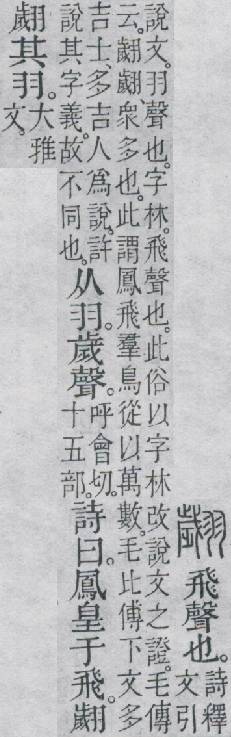 翽 飛聲也。詩釋文引
說文。羽聲也。字林。飛聲也。此俗以字林改說文之證。毛傳
云。翽翽、衆多也。此謂鳳飛羣鳥從以萬數。毛比傅下文多
吉士、多吉人爲說。許說其字義。故不同也。从羽。歲聲。呼會切。十五部。詩曰。鳳皇于飛。翽
翽其羽。大雅文。